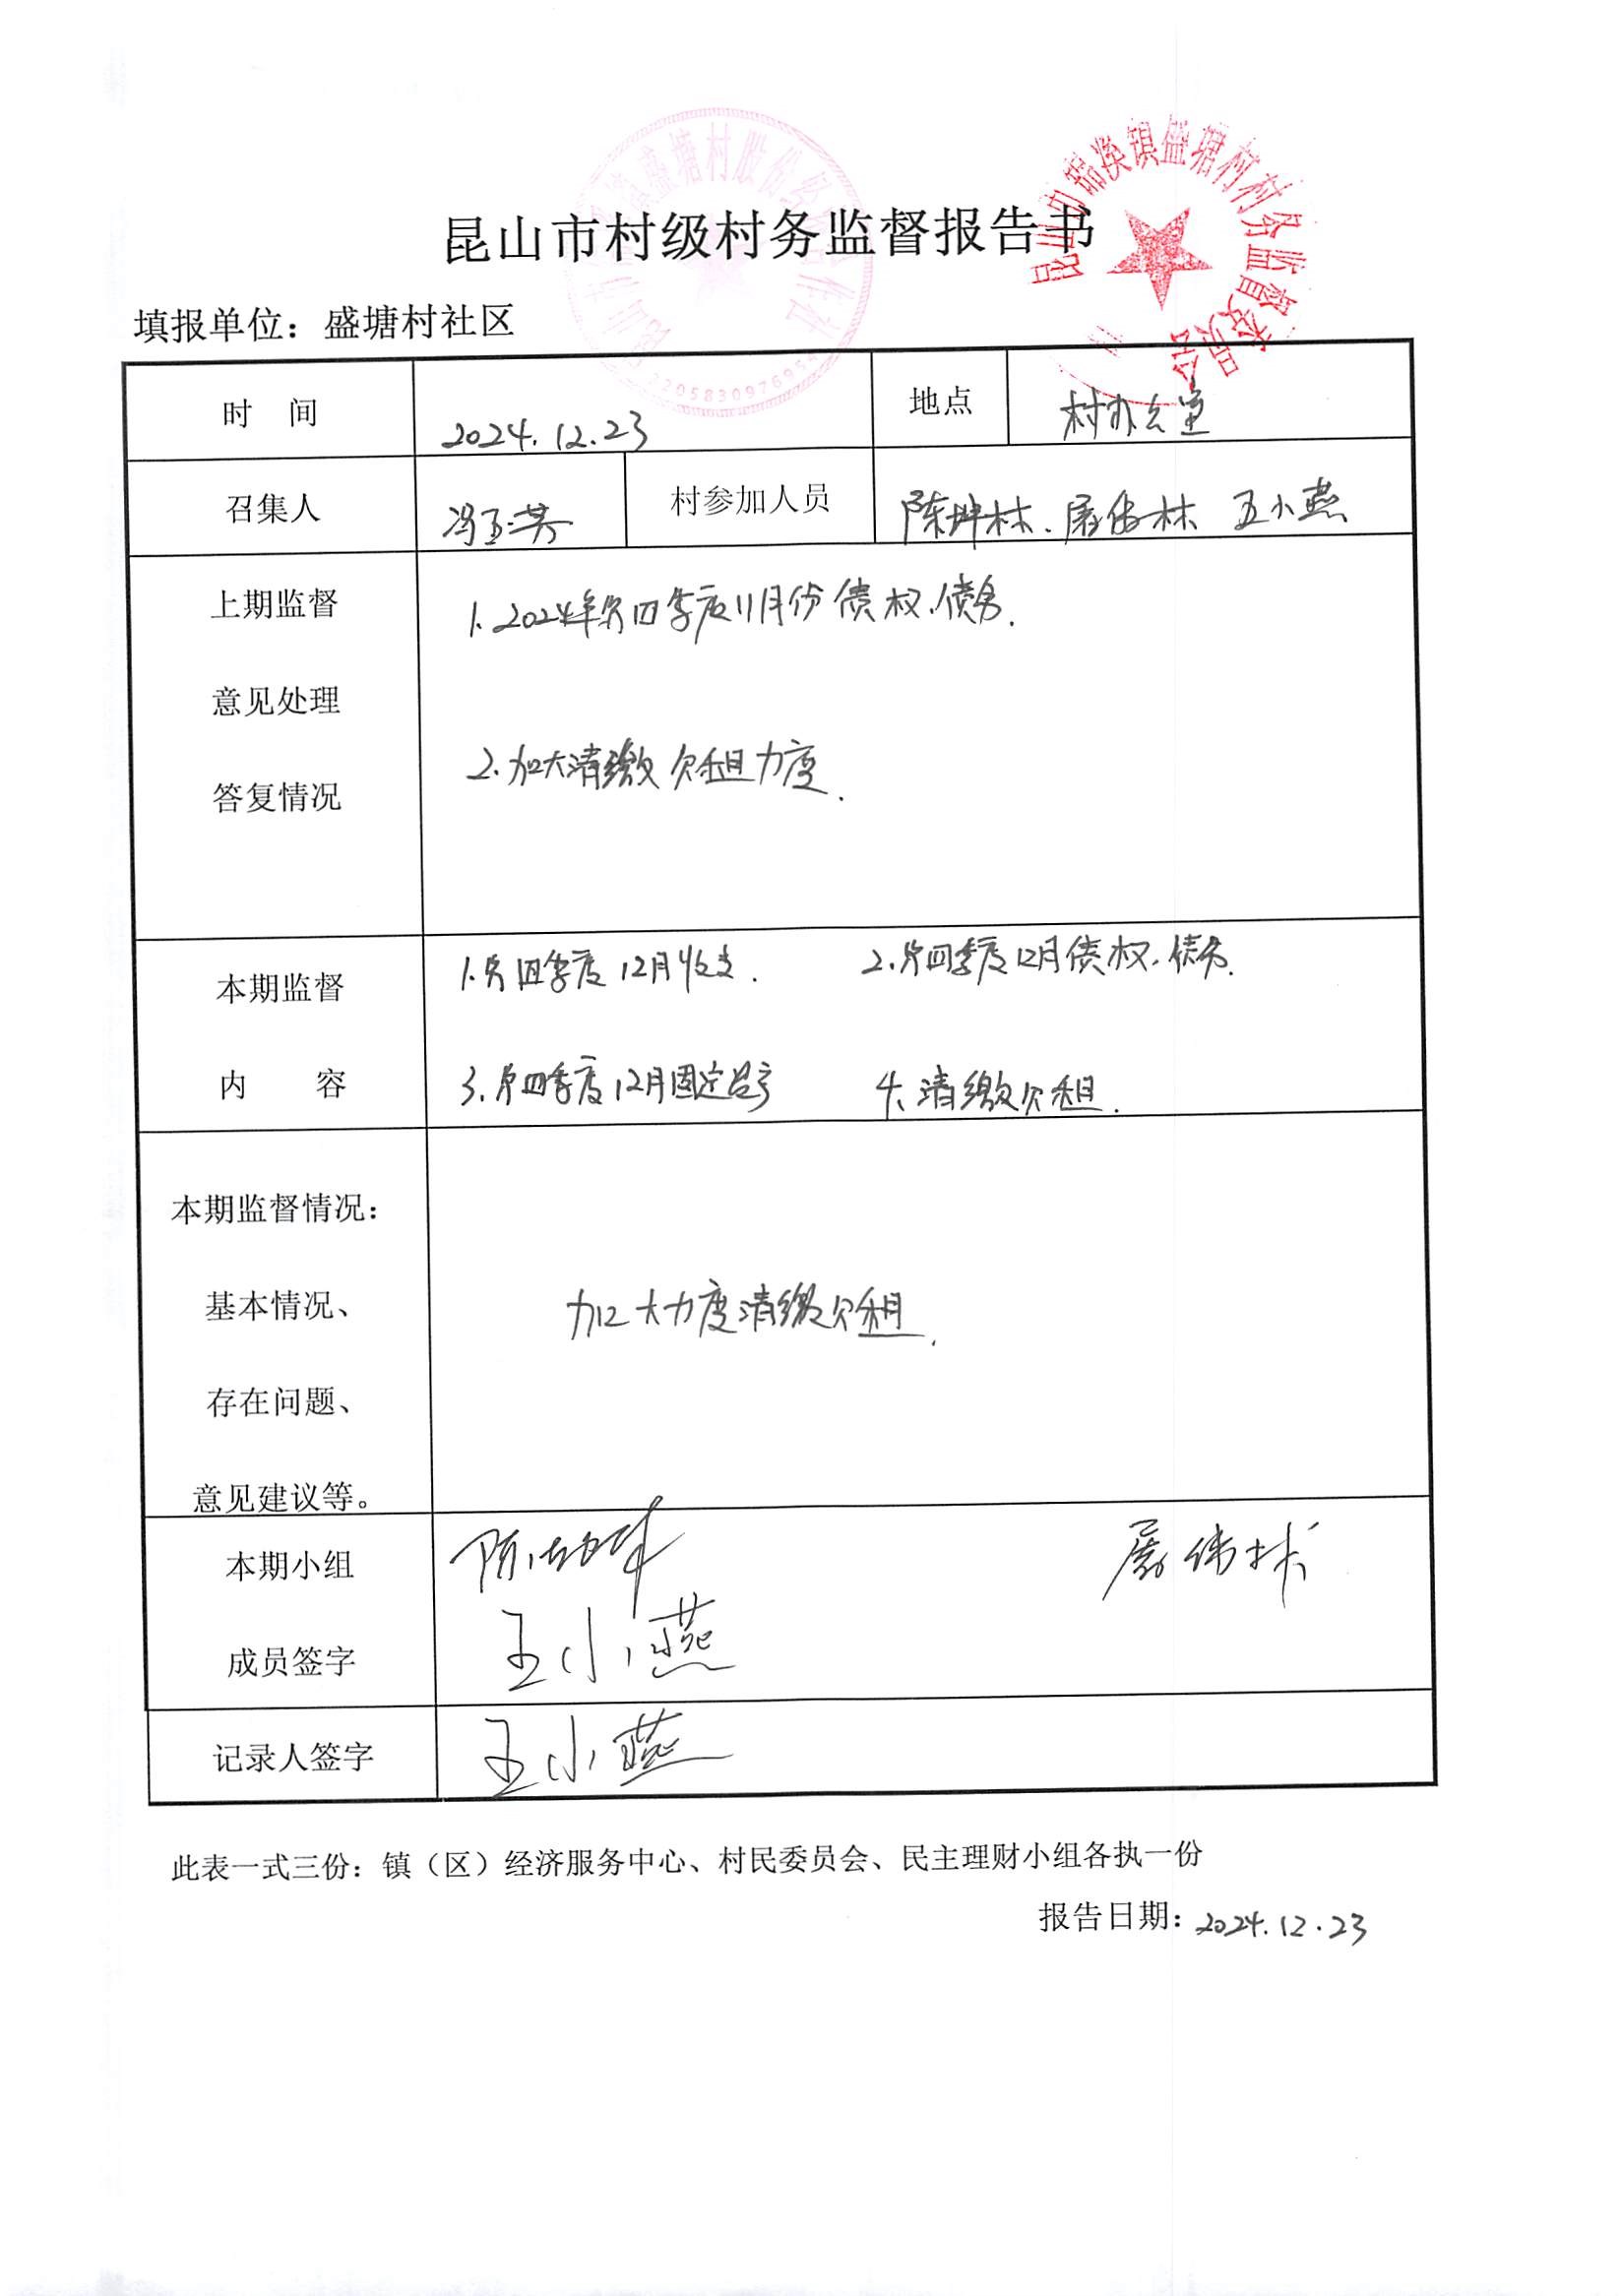 昆山市村级村务监督报告书
填报单位：盛塘村社区
时 间 2024.12.23 地点 村办公室
召集人 冯玉芳 村参加人员 陈坤林、屠伟林 王小燕
上期监督
意见处理
答复情况
1、2024年第四季度11月份债权、债务.
2、加大清缴欠租力度.
本期监督
内 容
1、第四季度12月收支. 2、第四季度12月债权、债务.
3、第四季度12月固定资产 4、清缴欠租.
本期监督情况：
基本情况、
存在问题、
意见建议等。
加大力度清缴欠租.
本期小组
成员签字
屠伟林
王小燕
记录人签字 王小燕
此表一式三份：镇（区）经济服务中心、村民委员会、民主理财小组各执一份
报告日期：2024.12.23
盛塘村股份经济合作社
盛塘村村务监督委员会